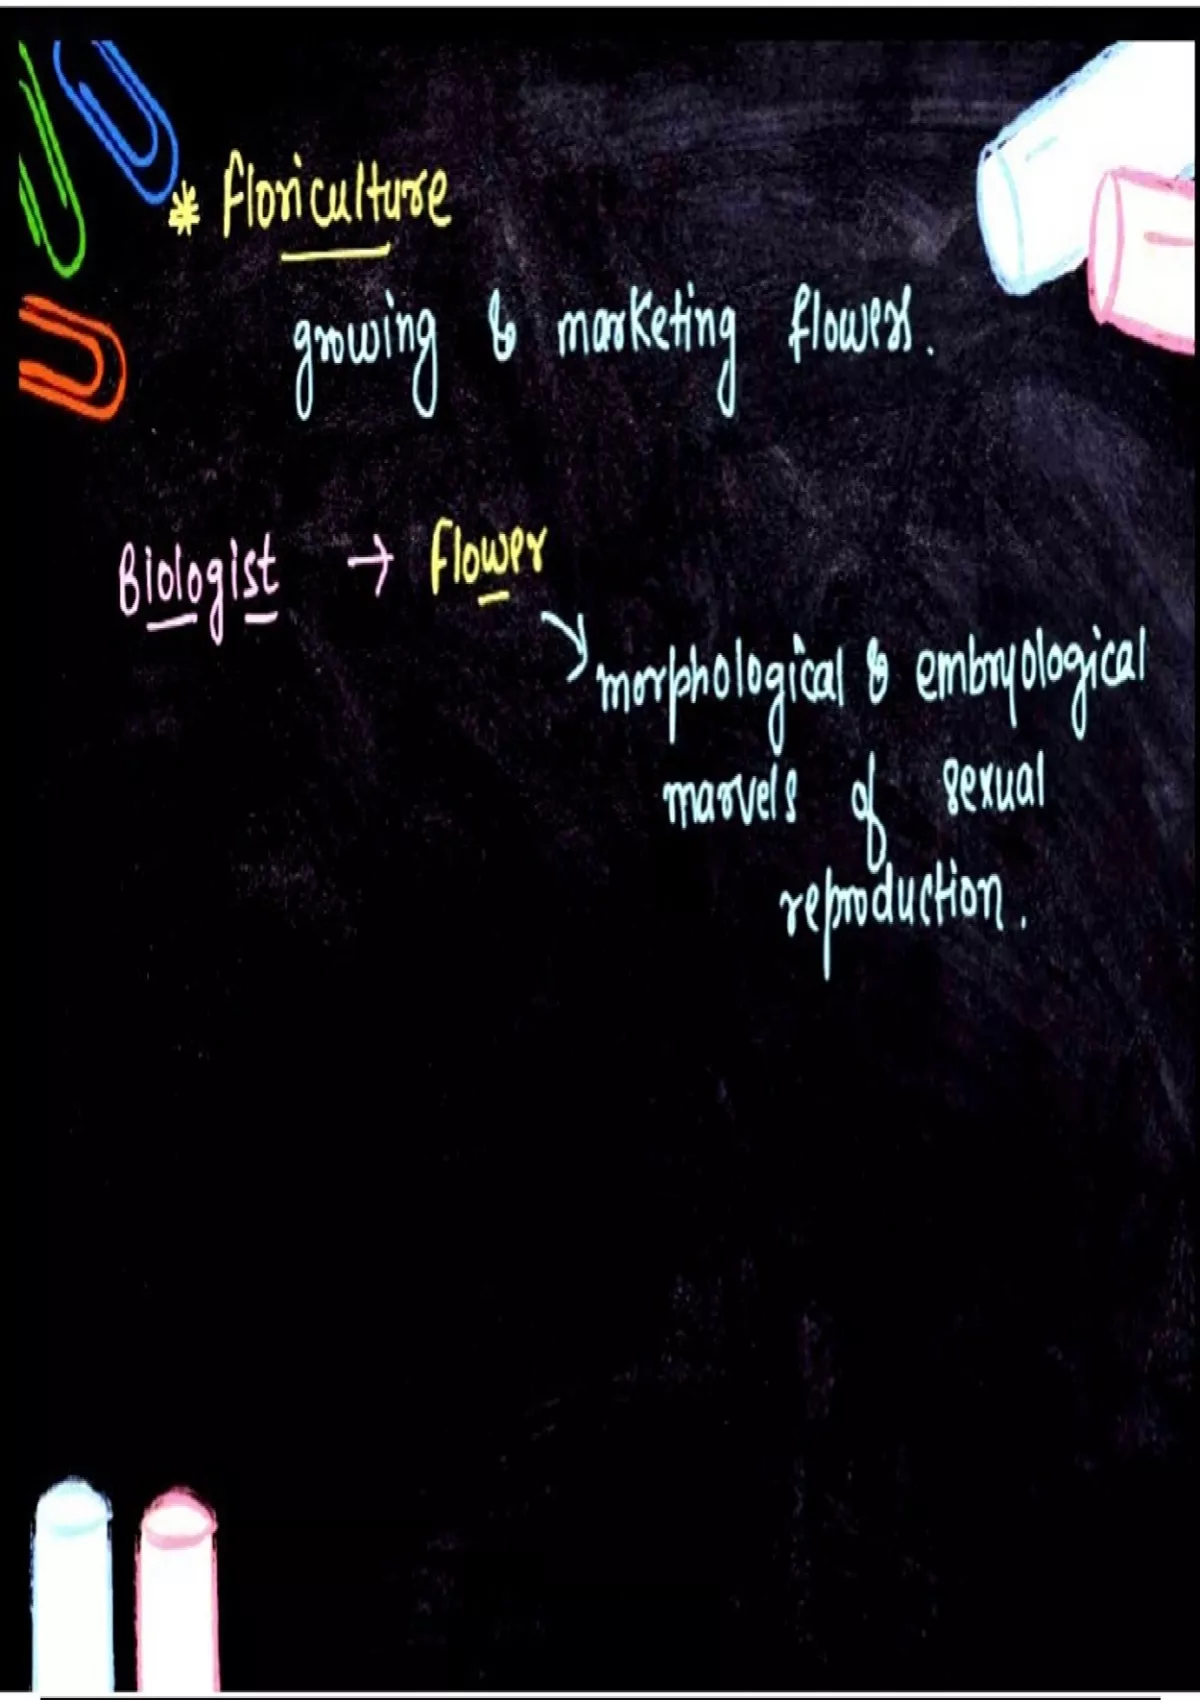 * Floriculture
growing & marketing flowers.
Biologist → Flower
morphological & embryological
marvels of sexual
reproduction.